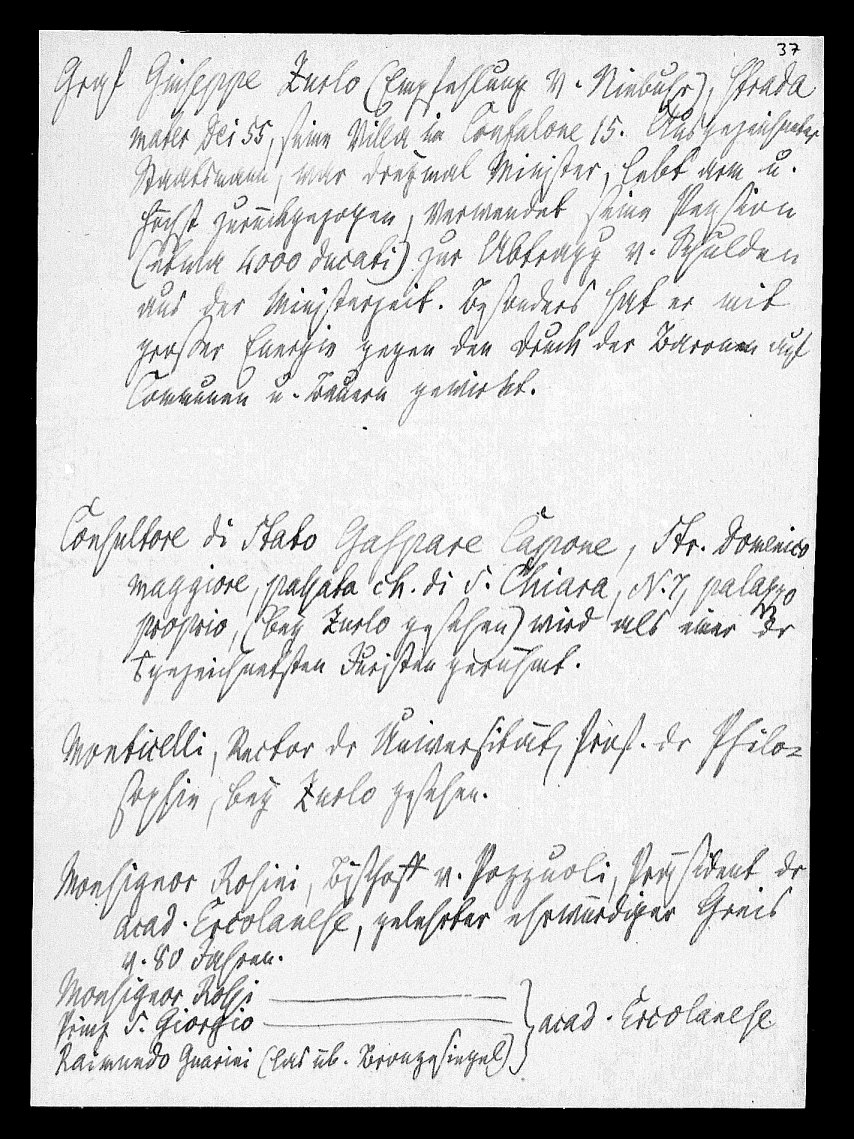 37
Graf Giuseppe Zurlo (Empfehlung v. Niebuhr), Strada
mater Dei 55, seine Villa in Confalone 15. Ausgezeichneter
Staatsmann, war dreymal Minister, lebt arm u.
höchst zurückgezogen, verwendet seine Pension
(etwa 4000 ducati) zur Abtragg v. Schulden
aus der Ministerzeit. Besonders hat er mit
großer Energie gegen den Druck der Baronen auf
Communen u. Bauern gewirkt.
Consultore di Stato Gaspare Capone, Str. Domenico
maggiore, passata ch. di S. Chiara, N. 7, palazzo
proprio, (bey Zurlo gesehen) wird als einer dr
ausgezeichnetsten Juristen gerühmt.
Monticelli, Rector dr Universität, Prof. dr Philo-
sophie, bey Zurlo gesehen.
Monsignor Rosini, Bischoff v. Pozzuoli, Präsident dr
acad. Ercolanese, gelehrter ehrwürdiger Greis
v. 80 Jahren.
Monsignor Rossi
Princ. S. Giorgio
acad. Ercolanese
Raimundo Guarini (las üb. Bronzesiegel)